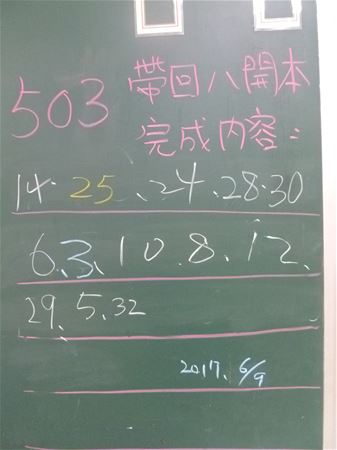 503 帶回八開本
完成內容:
14.25、24.28.30
6.3、10.8.12、
29.5.32
2017. 6/9